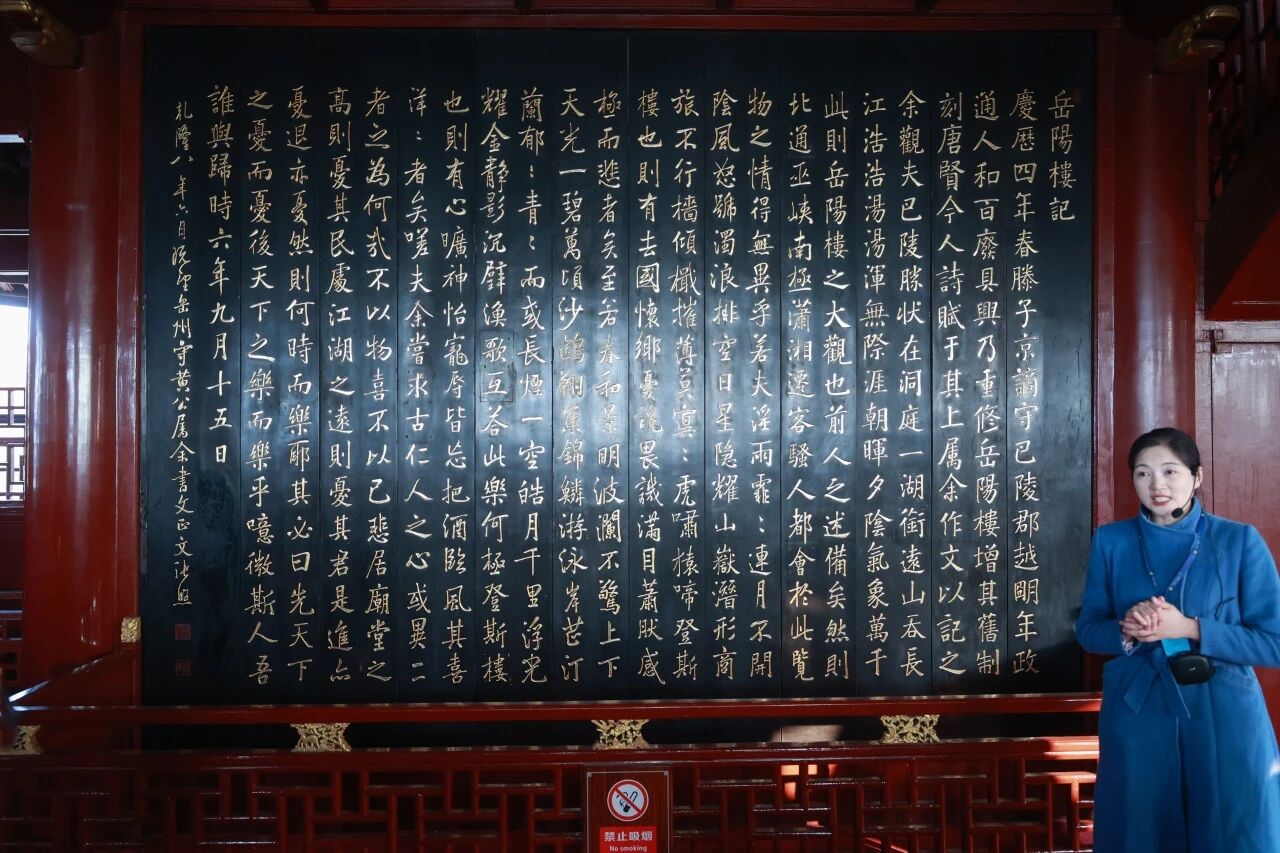 岳陽樓記
慶歷四年春滕子京謫守巴陵郡越明年政
通人和百廢具興乃重修岳陽樓增其舊制
刻唐賢今人詩賦于其上属余作文以記之
余觀夫巴陵勝狀在洞庭一湖銜遠山吞長
江浩浩湯湯渾無際涯朝暉夕陰氣象萬千
此則岳陽樓之大觀也前人之述備矣然則
北通巫峽南極瀟湘遷客騷人都會於此覽
物之情得無異乎若夫淫雨霏〻連月不開
陰風怒號濁浪排空日星隱耀山嶽潛形商
旅不行檣傾檝摧薄莫冥〻虎嘯猿啼登斯
樓也則有去國懷鄉憂讒畏譏滿目蕭然感
極而悲者矣至若春和景明波瀾不驚上下
天光一碧萬頃沙鷗翔集錦鱗游泳岸芷汀
蘭郁〻青〻而或長煙一空皓月千里浮光
耀金靜影沉璧漁歌互答此樂何極登斯樓
也則有心曠神怡寵辱皆忘把酒臨風其喜
洋〻者矣嗟夫余嘗求古仁人之心或異二
者之為何哉不以物喜不以己悲居廟堂之
高則憂其民處江湖之遠則憂其君是進亦
憂退亦憂然則何時而樂耶其必曰先天下
之憂而憂後天下之樂而樂乎噫微斯人吾
誰與歸時六年九月十五日
乾隆八年六月岳州守黃公属余書文正文張照
禁止吸烟
No smoking